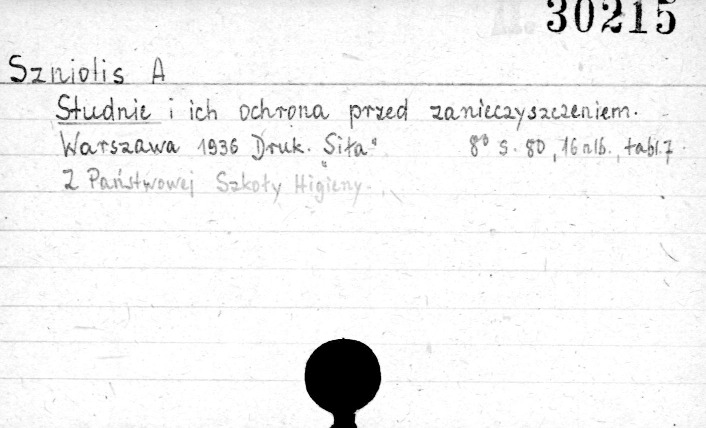 30215
Szniolis A
Studnie i ich ochrona przed zanieczyszczeniem.
Warszawa 1936 Druk. „Siła" 8° s. 80, 16 nlb., tabl. 7
Z Państwowej Szkoły Higieny.